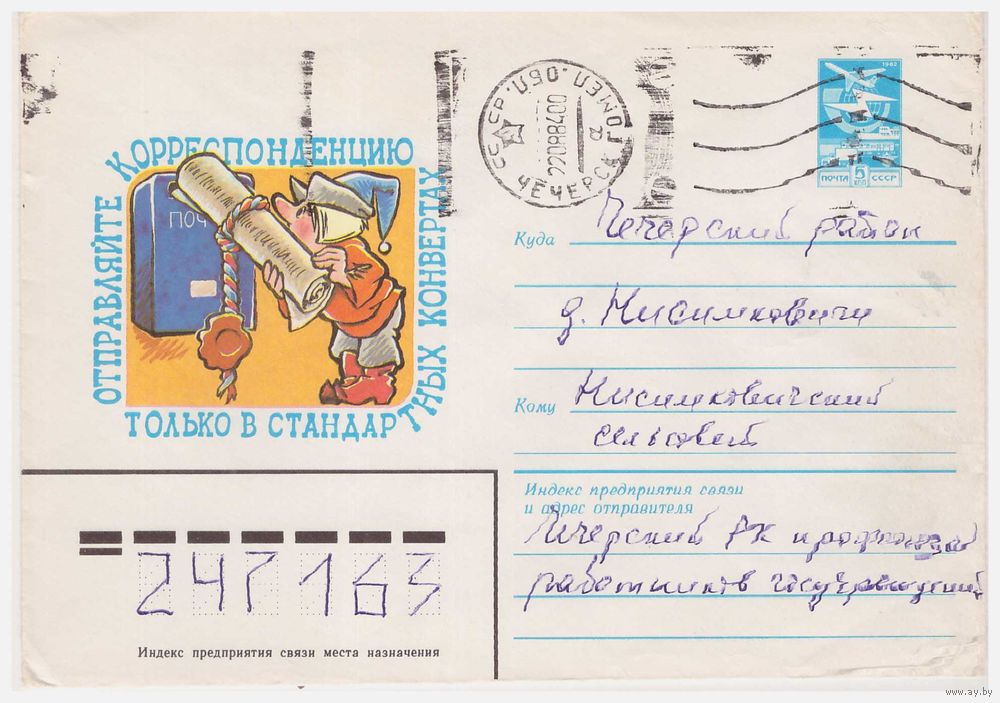 ОТПРАВЛЯЙТЕ КОРРЕСПОНДЕНЦИЮ
ТОЛЬКО В СТАНДАРТНЫХ КОНВЕРТАХ
ПОЧ
ЧЕЧЕРСК ГОМЕЛ. ОБЛ.
22088400
а
1982
ПОЧТА 5 КОП СССР
Куда Чечерский район
д. Нисимковичи
Кому Нисимковичский
сельсовет
Индекс предприятия связи
и адрес отправителя
Чечерский РК профсоюза
работников госучреждений
247163
Индекс предприятия связи места назначения
www.ay.by